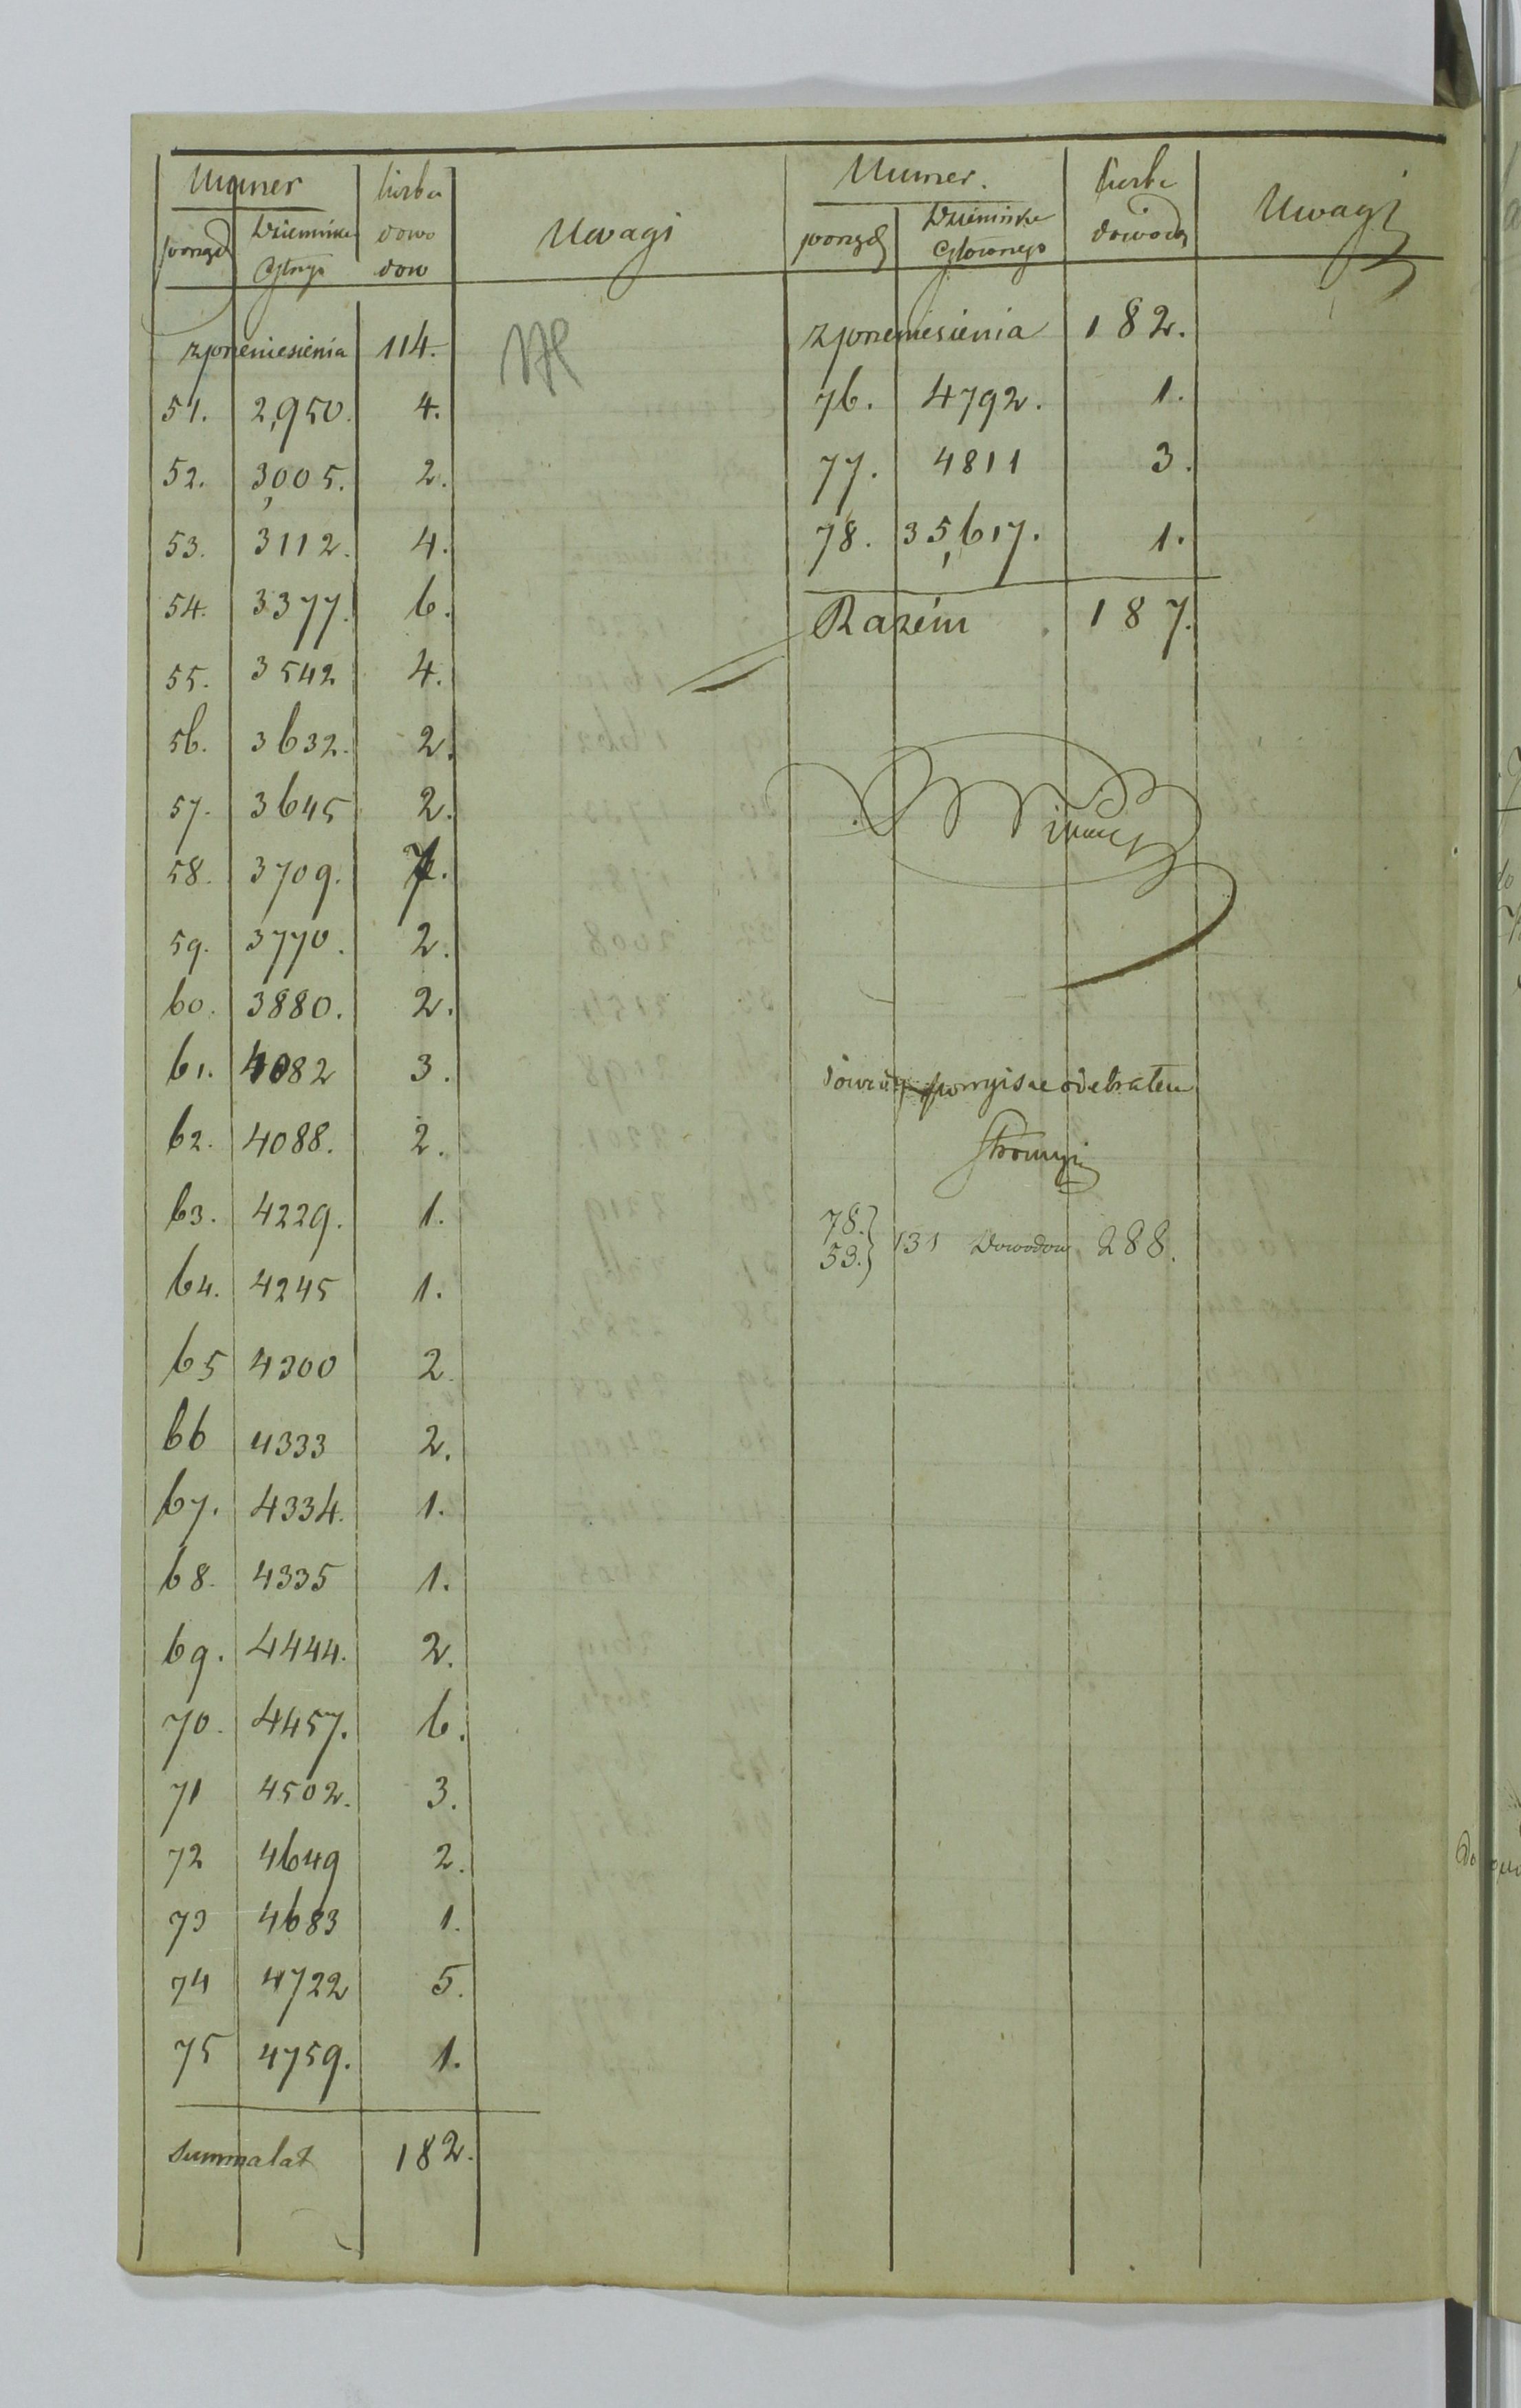 Numer
Liczba
porząd
Dziennika
Głnego
dowo
dow
Uwagi
z przeniesienia 114.
51. 2,950. 4.
52. 3,005. 2.
53. 3112. 4.
54. 3377. 6.
55. 3542 4.
56. 3632. 2.
57. 3645 2.
58. 3709. 7.
59. 3770. 2.
60. 3880. 2.
61. 4082 3.
62. 4088. 2.
63. 4229. 1.
64. 4245 1.
65 4300 2.
66 4333 2.
67. 4334. 1.
68. 4335 1.
69. 4444. 2.
70. 4457. 6.
71 4502. 3.
72 4649 2.
73 4683 1.
74 4722 5.
75 4759. 1.
Summa lat 182.
Numer.
Liczba
porząd
Dziennika
Głownego
dowod
Uwagi
z przeniesienia 182.
76. 4792. 1.
77. 4811 3.
78. 35,617. 1.
Razém 187.
odebrałem
78.
53. } 131 Dowodow 288.